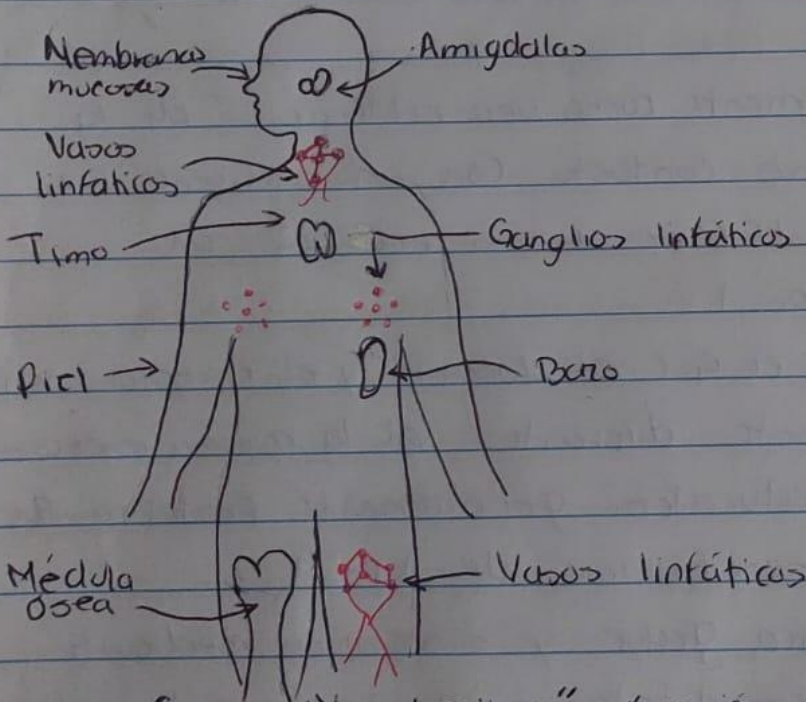 Membranas
mucosas
Amigdalas
Vasos
linfaticos
Timo
Ganglios linfáticos
Piel
Bazo
Médula
ósea
Vasos linfáticos